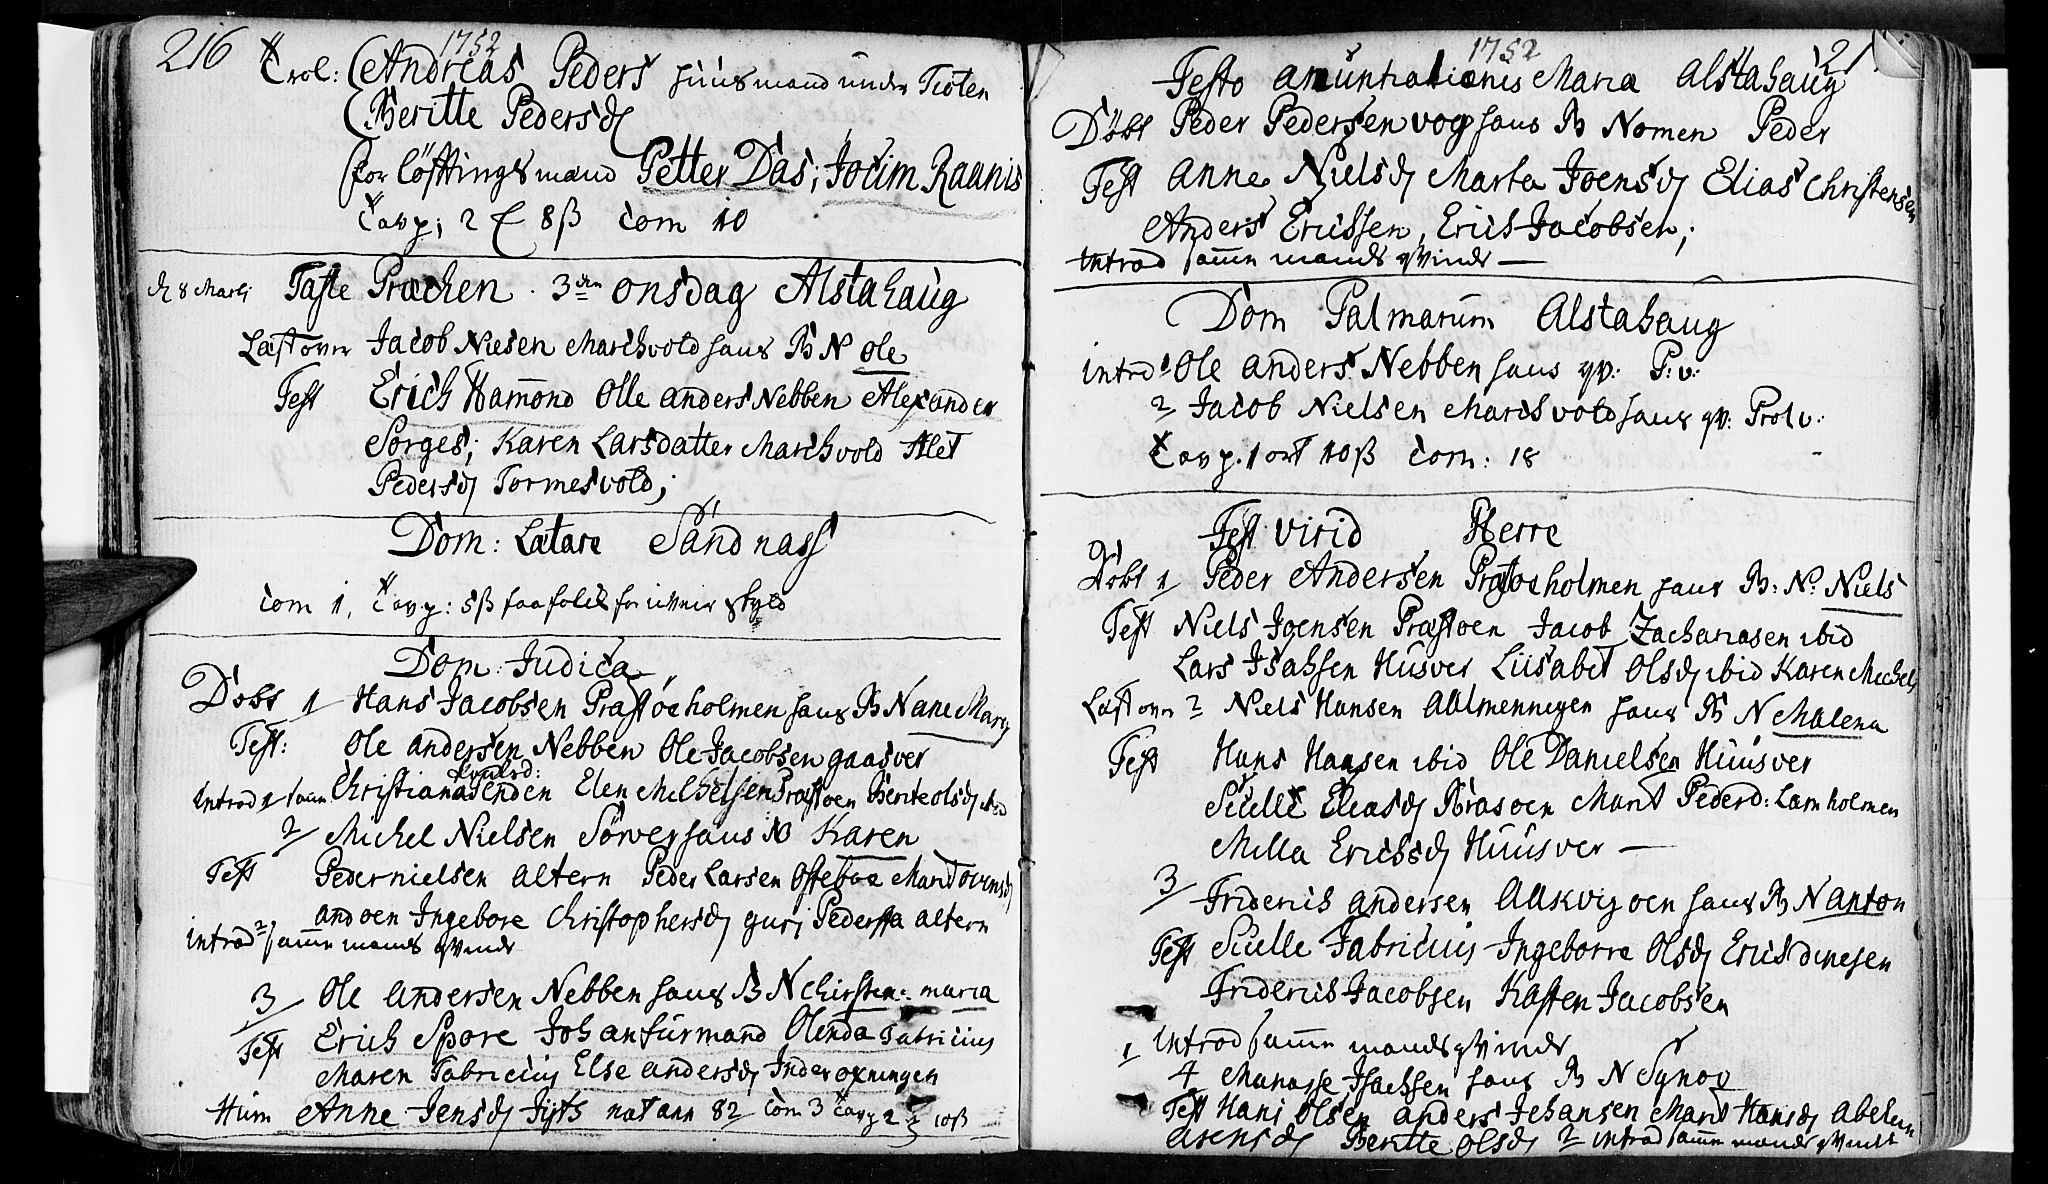 216
1752
Trol: Andreas Peders huusmand under Tiøten
Beritte Pedersd
for löftningsmand Petter Das; Jocim Raanis
Tavp; 2 8ß Com 10
d 8 Marti Faste Præchen. 3die onsdag Alstahaug
Læst over Jacob Nielsen Marchvold hans B N Ole
Test Erich Hammond Olle anders Nebben Alexander
Sorges; Karen Larsdatter Marchvold Alet
Pedersd Tormesvold;
Dom: Lætare Sandnass
Com 1, Tavp: 5ß faa folck for
Dom: Judica
Döbt 1 Hans Jacobsen Præstöeholmen hans B N ane Marg
Test: Ole andersen Nebben Ole Jacobsen gaasver
Christiana Elen Michelsen Præstoen Berite olsd ibid
Introd 1 samme
2 Michel Nielsen Sörver hans B Karen
Test Peder nielsen altern Peder Larsen Osteboe Marit ovensd
andoen Ingebore Christophersd guri Pedersda altern
introd 2 samme mands qvinde
3 Ole andersen Nebben hans B N Chirsten: maria
Test Erich Spore Johan furmand Olenda Fabricius
Maren Fabricius Else andersd Inderøxningen
Hum Anne Jensd nat ann 82 Com 3 Tavp 2 10ß
1752
21
Festo anuntiationis Maria Alstahaug
Döbt Peder Pedersen vog hans B Nomen Peder
Test anne Nielsd Marta Joensd Elias Christensen
Anders Erissen, Erich Jacobsen;
Introd samme mands qvinde —
Dom Palmarum Alstahaug
introd 1 Ole anders Nebben hans qv: P: v:
2 Jacob Nielsen Marchvold hans qv: Prolv:
Tavp. 1 ort 10ß Com: 18
Fest virid Herre
Döbt 1 Peder Andersen Præstoeholmen hans B: N: Niels
Test Niels Joensen Præstoen Jacob Zachariasen ibid
Lars Isahsen Husver Liisabet Olsd ibid Karen Michels
Læst over 2 Niels Hansen Aalmenningen hans B N Malena
Test Hans Hansen ibid Ole Danielsen Huusver
Siille Eliasd Brasoen Marit Pederd: Lamholmen
Milla Erichsd Huusver —
3 Friderich andersen Aakvigoen hans B N anton
Test Siille Fabricius Ingeborre Olsd Erich dinesen
Friderich Jacobsen Kasten Jacobsen
1 Introd samme mands qvinde
4 Manasse Isachsen hans B N Synov
Test Hans Olsen anders Johansen Marit Hansd Abelun
arensd Beritte olsd 2 introd samme mands qvinde